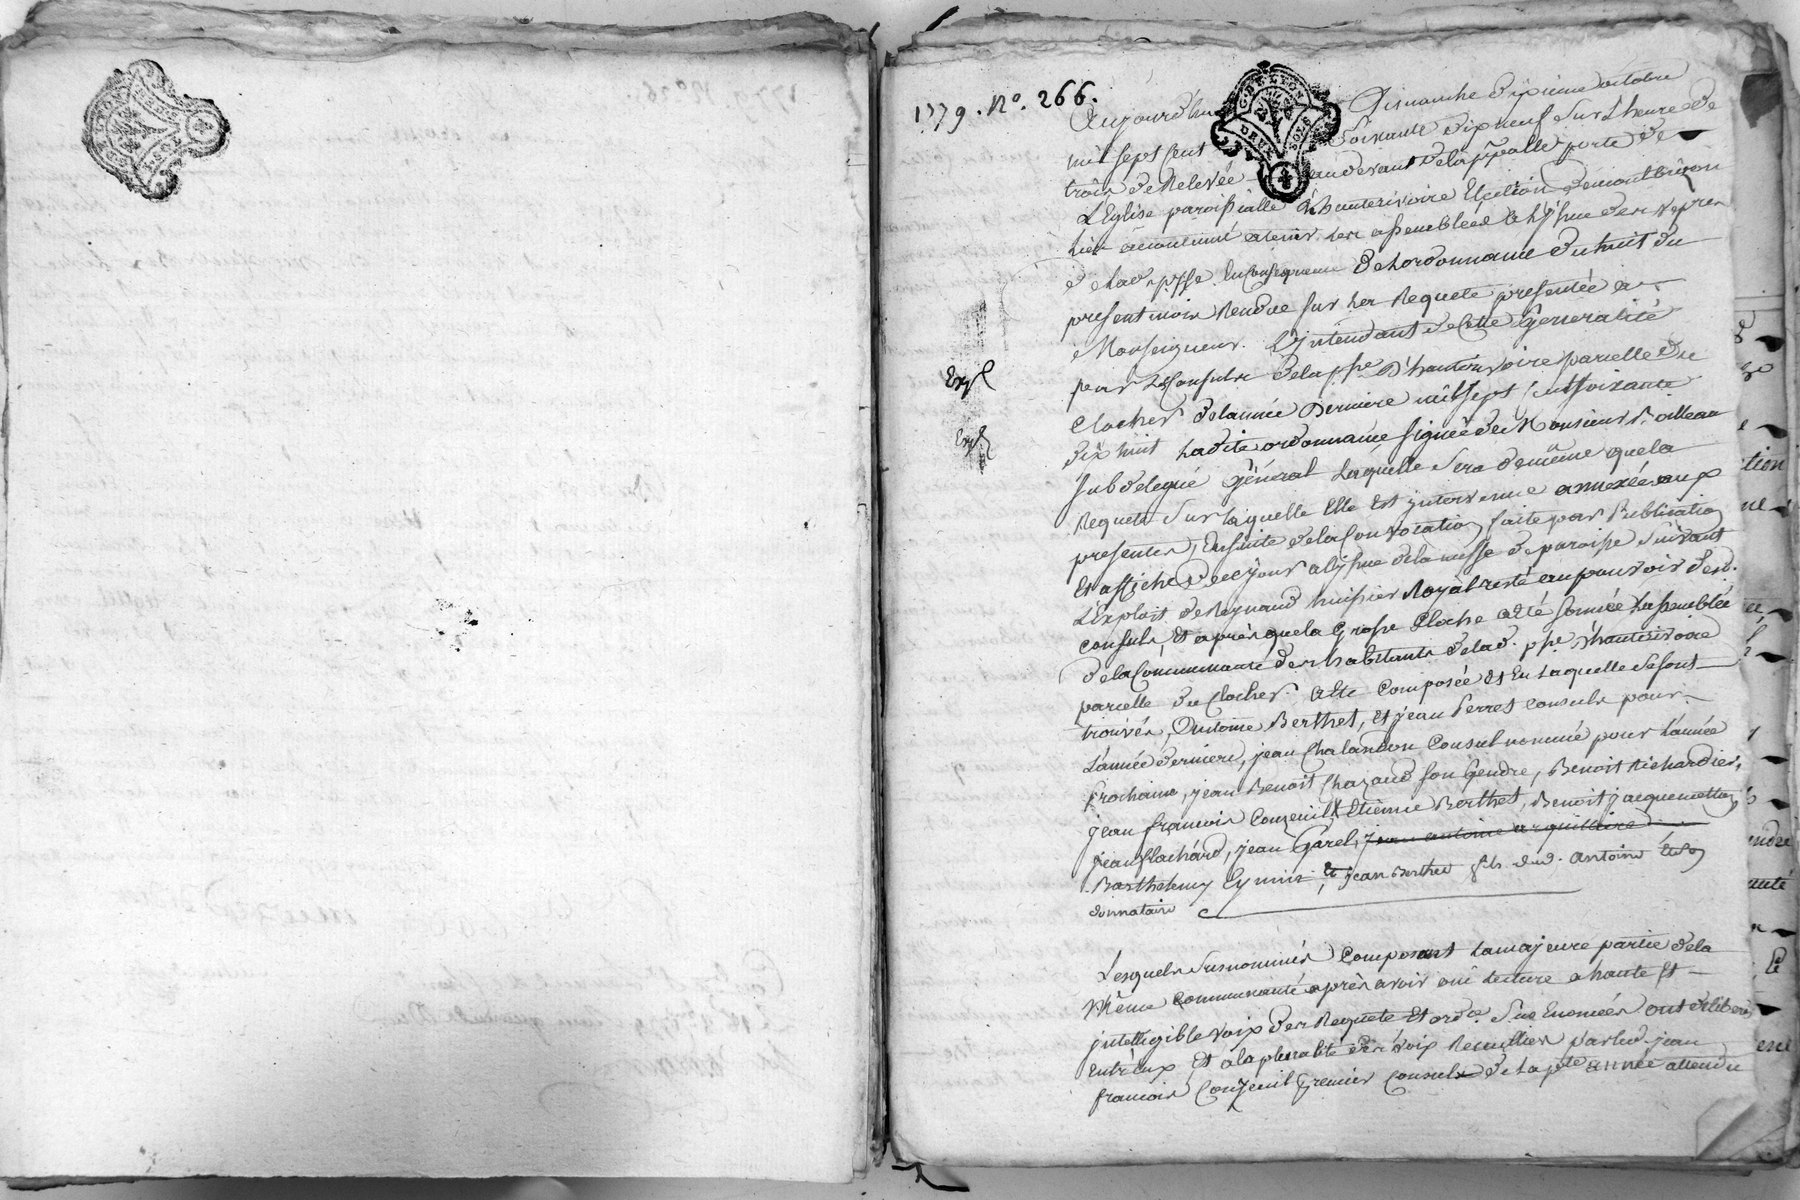 1779. N°. 266.
Aujourd'hui Dimanche dixieme octobre
mil sept cent soixante dix neuf sur L'heure de
trois de Relevée au devant de la pp̄alle porte de
L'Eglise paroissialle d'hauterivoire Election de montbrison
Lieu accoutumé a tenir les assemblées a L'yssue des Vepres
de lad. ppsse En Consequence De Lordonnance du huit du
present mois Rendue sur les Requete presentée a
Monseigneur L'yntendant de Cette Generalité
par les Consuls de la ppsse D'hauterivoire parcelle du
Clocher de lannée Derniere mil sept Cent soixante
dix huit Ladite ordonnance signée de Monsieur
subdelegué General Laquelle sera de même que la
Requete sur laquelle Elle Est yntervenue annexée aux
presentes, Ensuite de la Convocation faite par Publication
Et affiche de ce jour a L'yssue de la messe de paroisse suivant
L'Exploit de Reynaud huissier Royal resté au pouvoir desd.
consuls, Et après que la Grosse Cloche a été sonnée Lassemblée
de la Communauté des habitants de lad. ppsse d'hauterivoire
parcelle du Clocher a Eté Composée Et En Laquelle se sont
trouvés, Antoine Berthet, Et jean Perret consuls pour
L'année derniere, jean Chalandon Consul nommé pour L'année
Prochaine, jean Benoit Chazaud son Gendre, Benoit Richardier,
jean francois Couzeuil Etienne Berthet, Benoit jacquemetton
jean flachard, jean Garel, jean antoine arquilliere
Barthelemy Eymin Et jean Berthet fils dud. antoine
donnataire
Lesquels susnommés Composant La majeure partie de la
Même Communauté après avoir oui Lecture a haute Et
jntelligible voix des Requete Et ordce. sus Enoncées ont deliberé
Entr'eux Et a la pluralité des voix Recueillies par led. jean
francois Couzeuil Premier Consul de La pnte année attendu